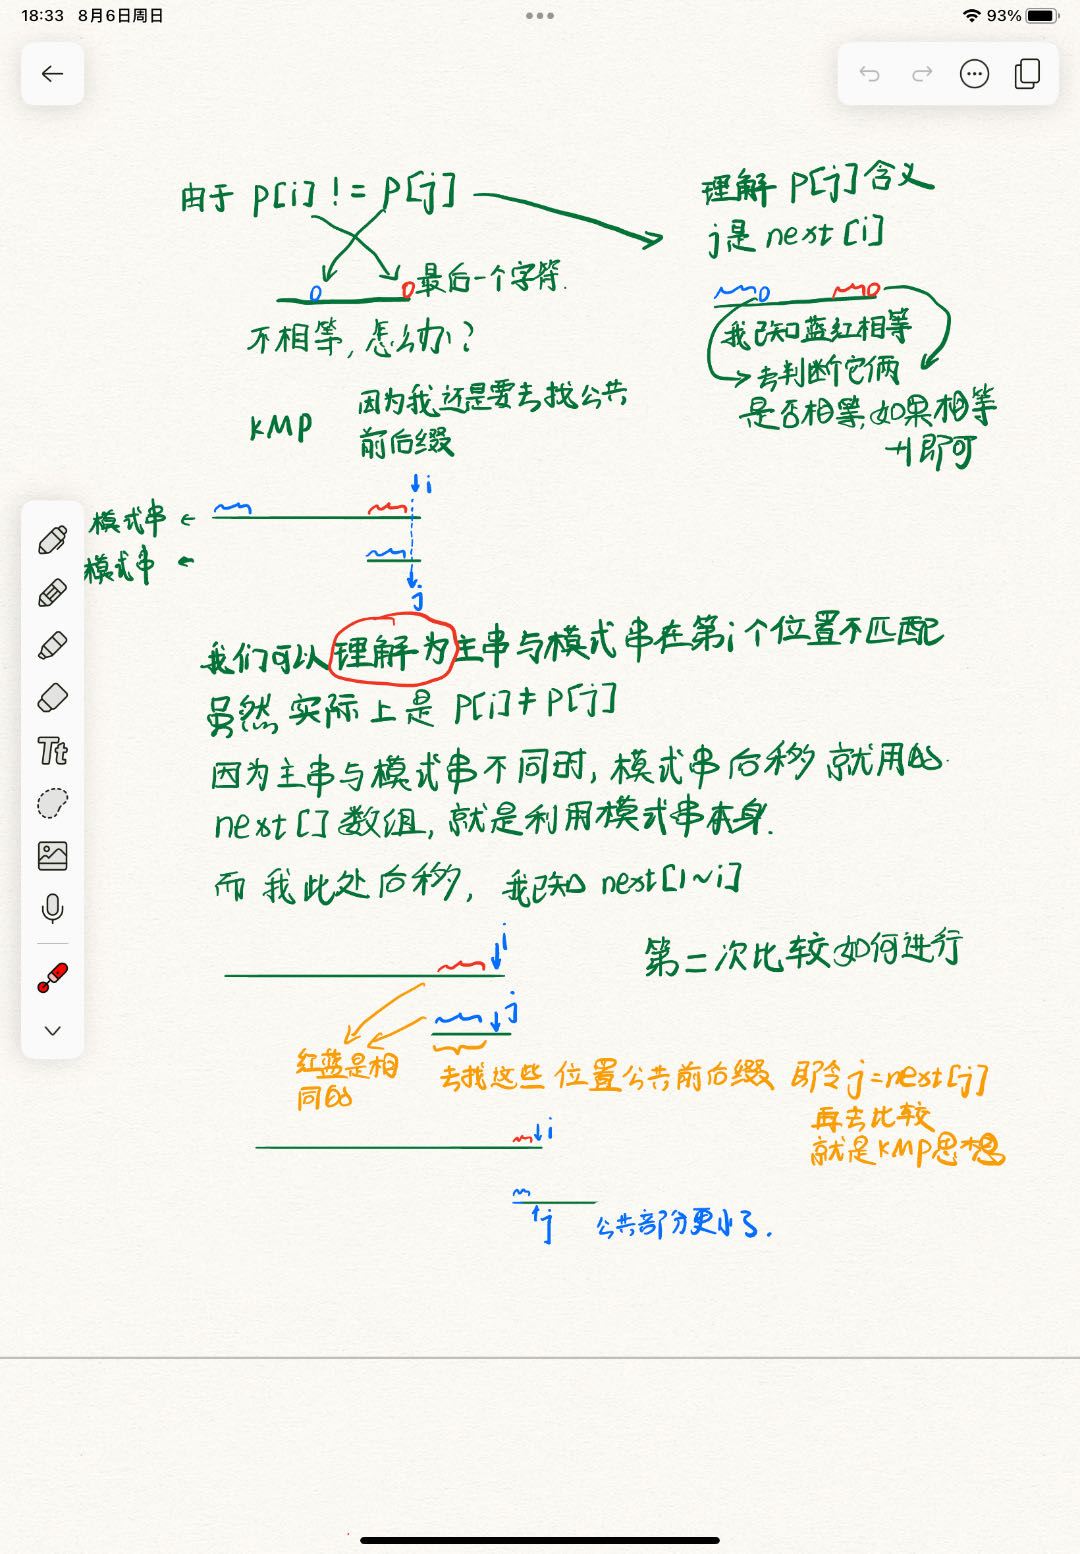 18:33 8月6日周日
93%
由于 P[i] != P[j]
最后一个字符.
不相等, 怎么办?
理解 P[j] 含义
j是 next [i]
我已知蓝红相等
去判断它俩
是否相等,如果相等
+1即可
KMP
因为我还是要去找公共
前后缀
i
模式串 ←
模式串 ←
j
我们可以理解为主串与模式串在第i个位置不匹配
虽然 实际上是 P[i] ≠ P[j]
因为主串与模式串不同时, 模式串后移 就用的
next[] 数组, 就是利用模式串本身.
而 我此处后移, 我已知 next[1~i]
第二次比较如何进行
i
j
红蓝是相
同的
去找这些 位置公共前后缀 即令 j=next[j]
再去比较
就是KMP思想
i
j 公共部分更小了.
Tt